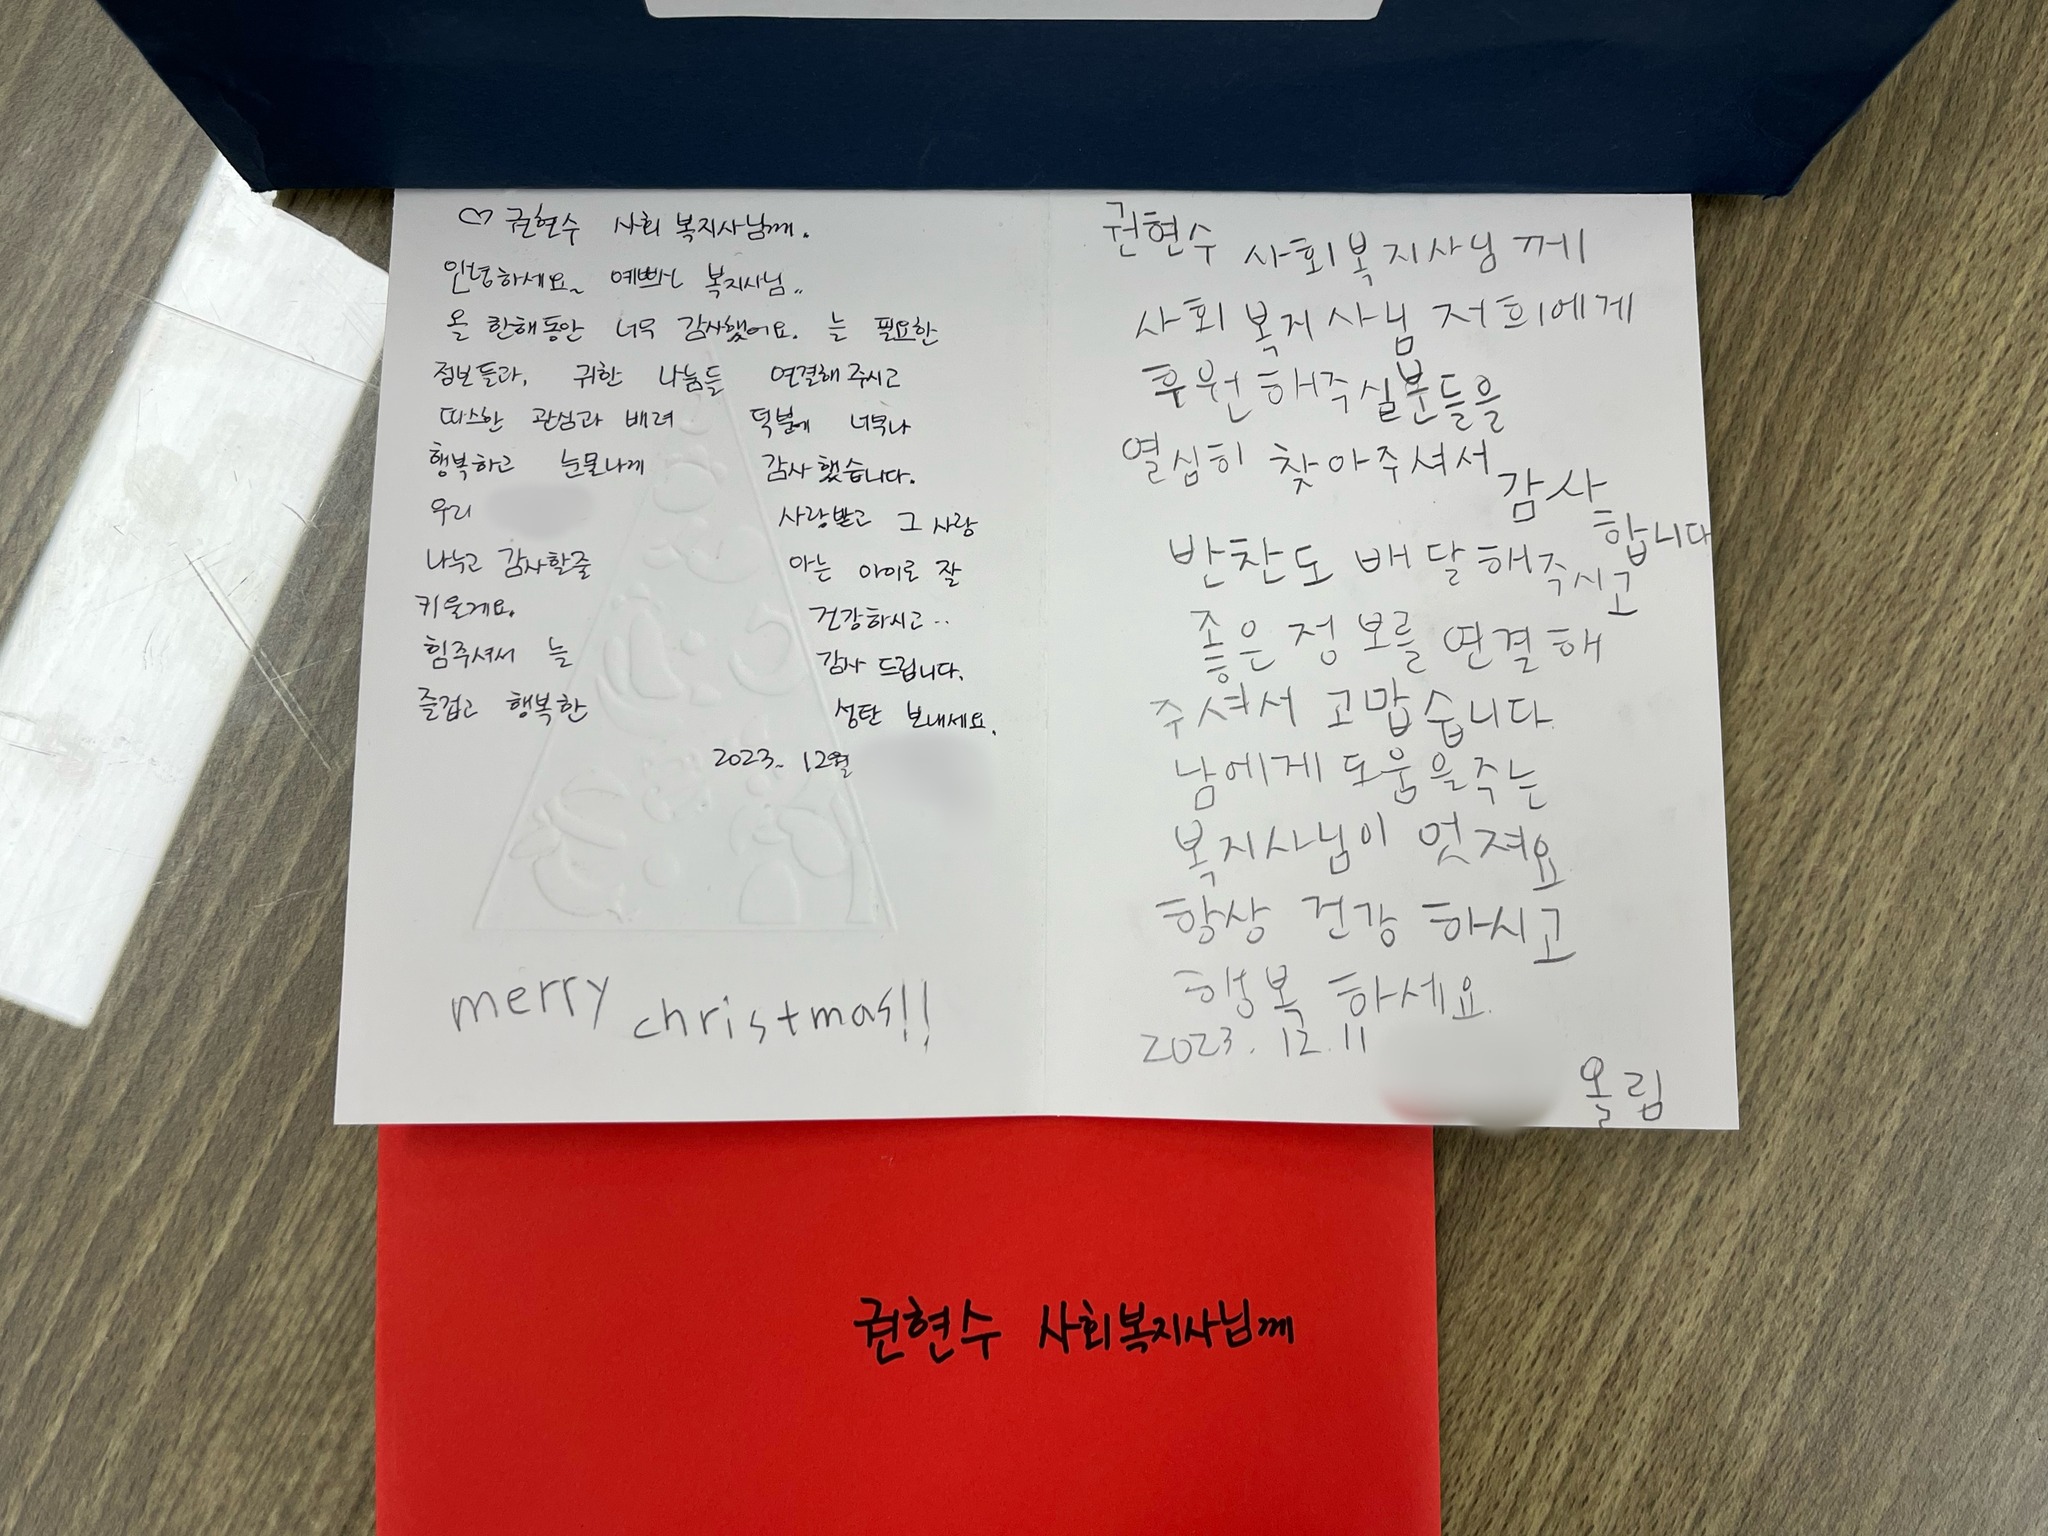 ♡ 권현수 사회 복지사님께.
안녕하세요~ 예쁘신 복지사님..
올 한해동안 너무 감사했어요. 늘 필요한
정보들과, 귀한 나눔들 연결해 주시고
따스한 관심과 배려 덕분에 너무나
행복하고 눈물나게 감사했습니다.
우리 사랑받고 그 사랑
나누고 감사할줄 아는 아이로 잘
키울게요. 건강하시고..
힘주셔서 늘 감사 드립니다.
즐겁고 행복한 성탄 보내세요.
2023. 12월
merry christmas!!
권현수 사회복지사님께
사회복지사님 저희에게
후원해주실분들을
열심히 찾아주셔서
감사
합니다
반찬도 배달해주시고
좋은 정보를 연결해
주셔서 고맙습니다
남에게 도움을주는
복지사님이 멋져요
항상 건강 하시고
행복 하세요.
2023. 12. 11
올림
권현수 사회복지사님께